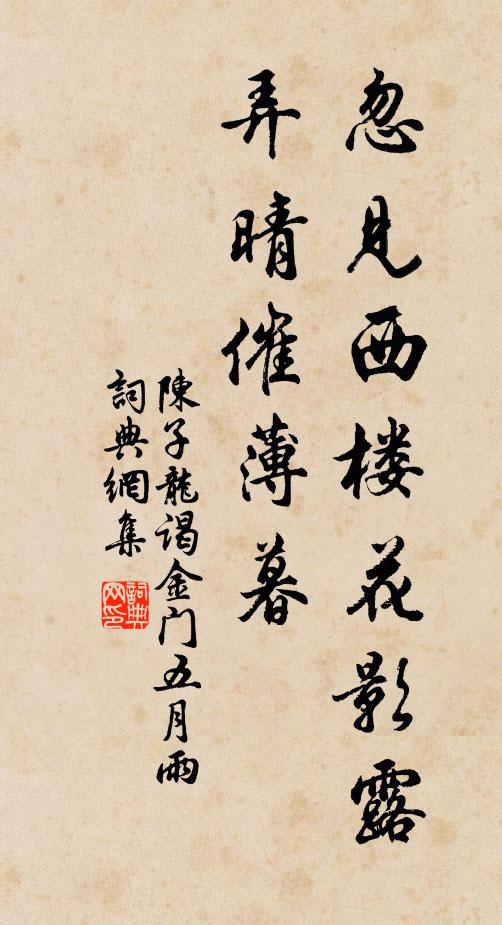 忽见西楼花影露
弄晴催薄暮
陳子龍謁金门五月雨
詞典網集
詞典
网印